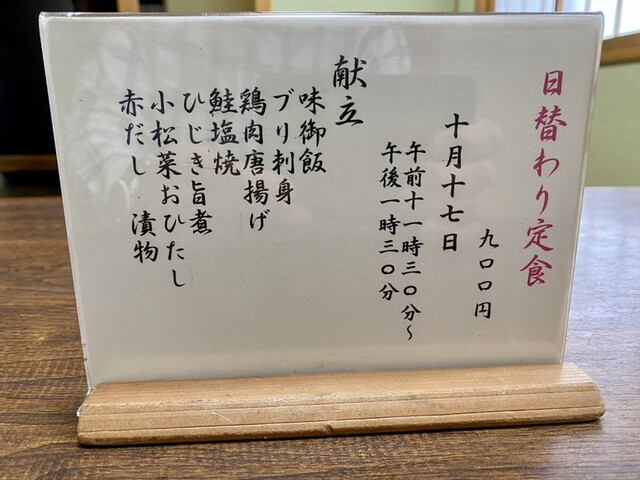 日替わり定食
九〇〇円
十月十七日
午前十一時三〇分～
午後一時三〇分
献立
味御飯
ブリ刺身
鶏肉唐揚げ
鮭塩焼
ひじき旨煮
小松菜おひたし
赤だし 漬物